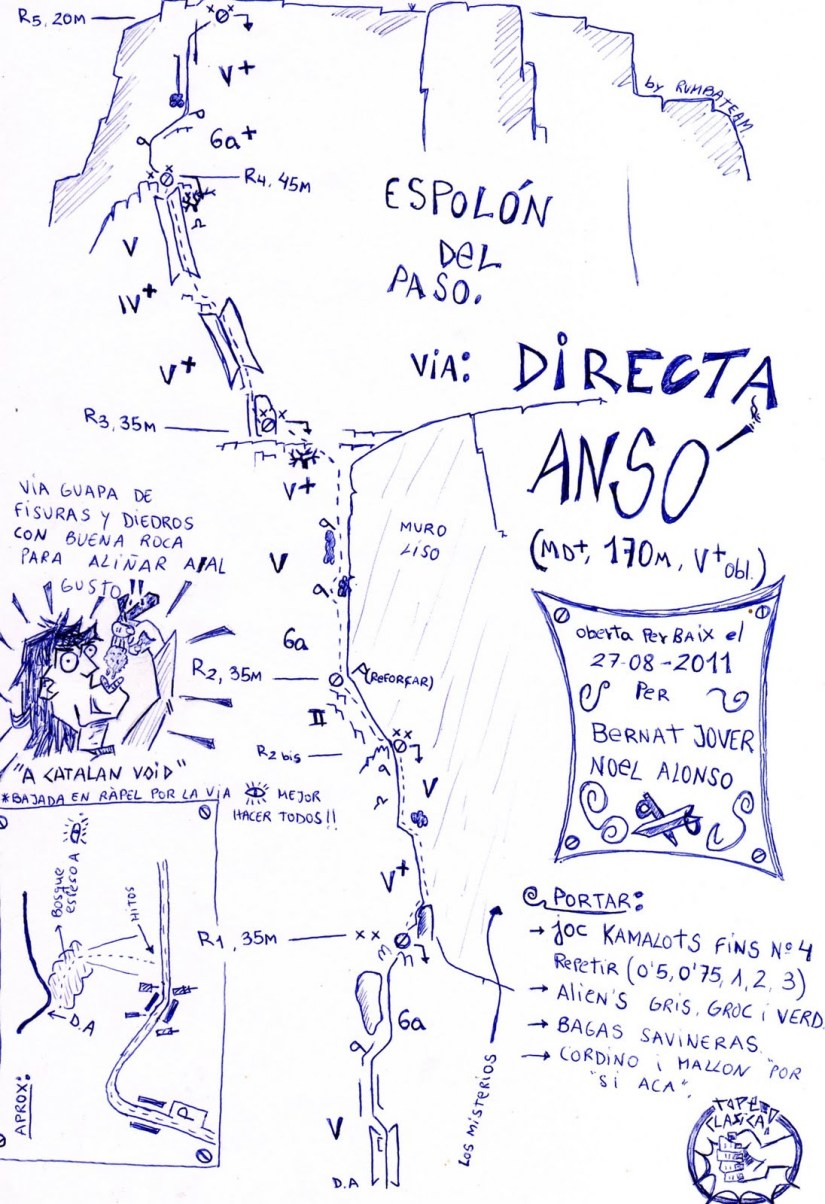 R5, 20M
V+
by RUMBATEAM.
6a+
R4, 45M
ESPOLÓN
DEL
PASO.
V
IV+
V+
ViA: DiRECTA
ANSO
(MD+, 170M, V+ obl.)
R3, 35M
V+
ViA GUAPA DE
FiSURAS Y DIEDROS
CON BUENA ROCA
PARA ALIÑAR A/AL
GUSTO!!
MURO
LiSO
V
6a
R2, 35M
A (REFORÇAR)
II
R2 bis
"A CATALAN VOiD"
*BAJADA EN RÀPEL POR LA ViA
MEJOR
HACER TODOS!!
V
V+
oberta Per BAiX el
27-08-2011
Per
BERNAT JOVER
NOEL ALONSO
BOSQUE
ESPESO A
HiTOS
D.A
APROX:
P
R1, 35M
6a
V
D.A
LOS MISTERIOS
PORTAR:
→ JOC KAMALOTS FiNS Nº4
REPETiR (0'5, 0'75, 1, 2, 3)
→ ALIEN'S GRIS, GROC i VERD.
→ BAGAS SAVINERAS.
→ CORDINO i MALLON "POR
"Si ACA".
TOPED
CLASICA